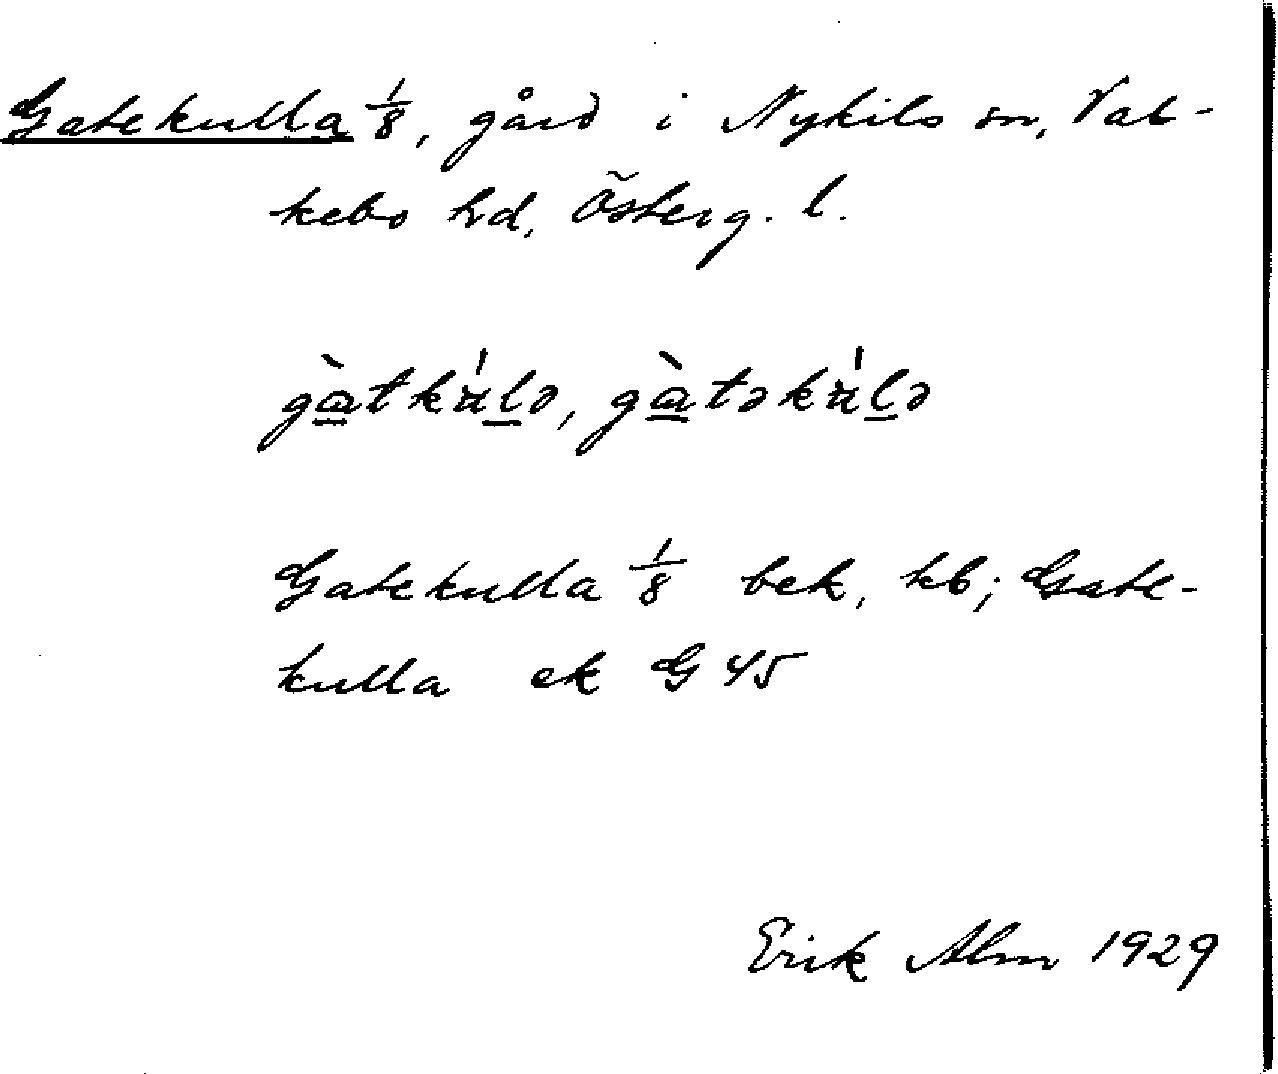 Gatekulla 1/8, gård i Nykils sn, Val-
kebo hd, Österg. l.
gàtku̍lə, gàtəku̍lə
Gatekulla 1/8 bek, kb; Gate-
kulla ek G 45
Erik Alm 1929